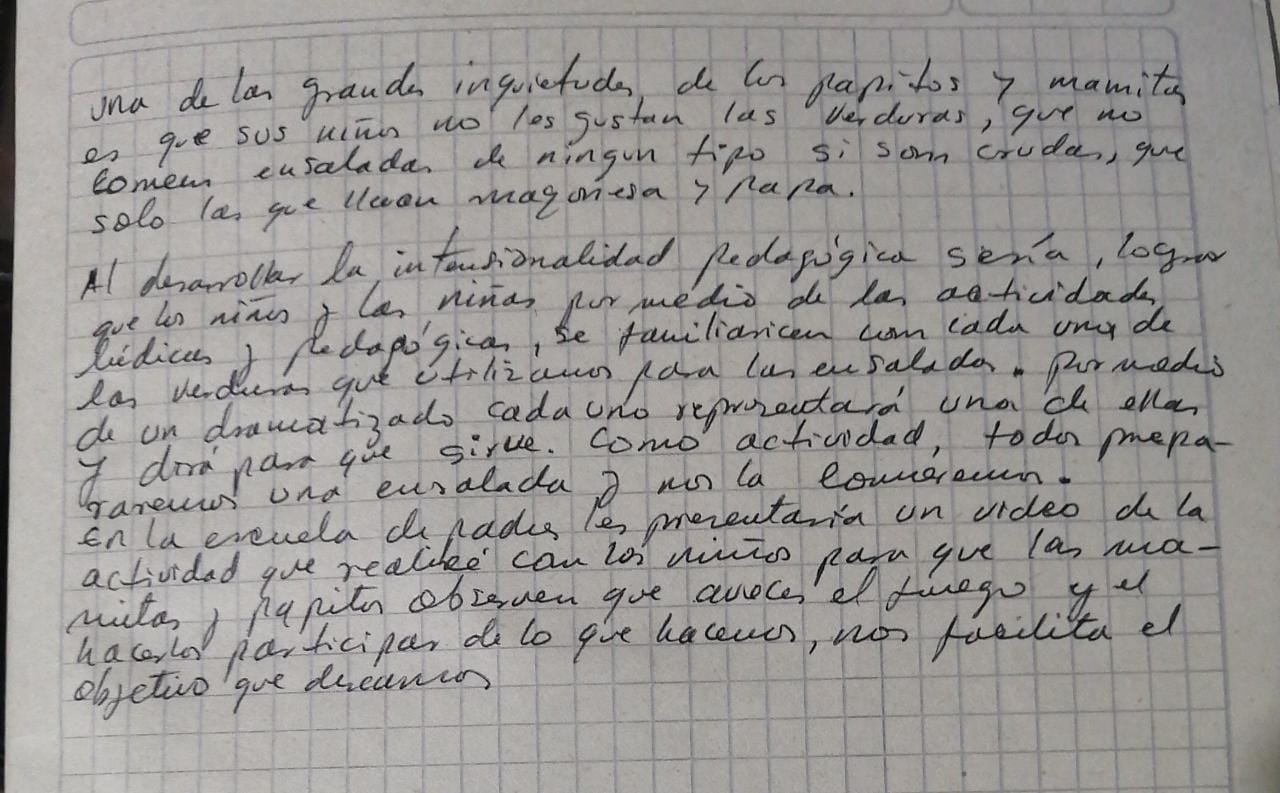 una de las grandes inquietudes de los papitos y mamitas
es que sus niños no les gustan las verduras, que no
comen ensaladas de ningun tipo si son crudas, que
solo las que llevan mayonesa y papa.
Al desarrollar la intensionalidad pedagógica sería, lograr
que los niños y las niñas por medio de las actividades
lúdicas y pedagógicas, se familiaricen con cada una de
las verduras que utilizamos para las ensaladas. por medio
de un dramatizado cada uno representará una de ellas
y dirá para que sirve. Como actividad, todos prepa-
raremos una ensalada y nos la comeremos.
En la escuela de padres les presentaría un video de la
actividad que realicé con los niños para que las ma-
mitas y papitos observen que aveces el juego y el
hacerlos participar de lo que hacemos, nos facilita el
objetivo que deseamos